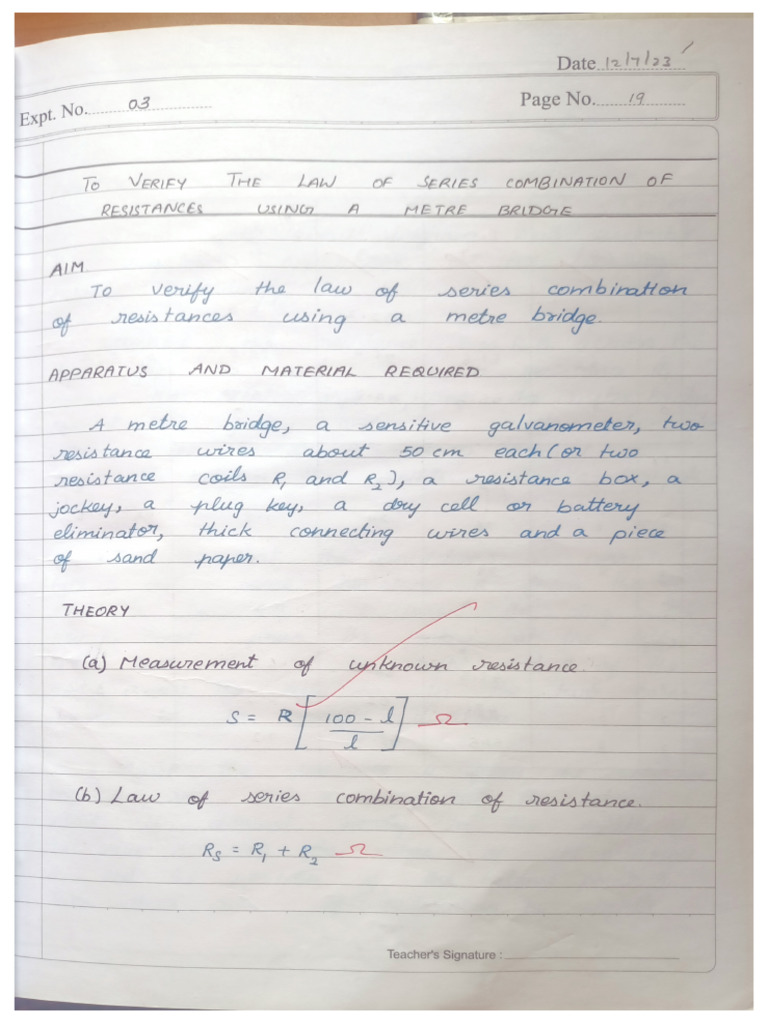 Date 12/7/23
Expt. No. 03
Page No. 19
TO VERIFY THE LAW OF SERIES COMBINATION OF
RESISTANCES USING A METRE BRIDGE
AIM
To verify the law of series combination
of resistances using a metre bridge.
APPARATUS AND MATERIAL REQUIRED
A metre bridge, a sensitive galvanometer, two
resistance wires about 50 cm each (or two
resistance coils R₁ and R₂), a resistance box, a
jockey, a plug key, a dry cell or battery
eliminator, thick connecting wires and a piece
of sand paper.
THEORY
(a) Measurement of unknown resistance.
S = R [(100 - l)/l] Ω
(b) Law of series combination of resistance.
Rs = R₁ + R₂ Ω
Teacher's Signature :